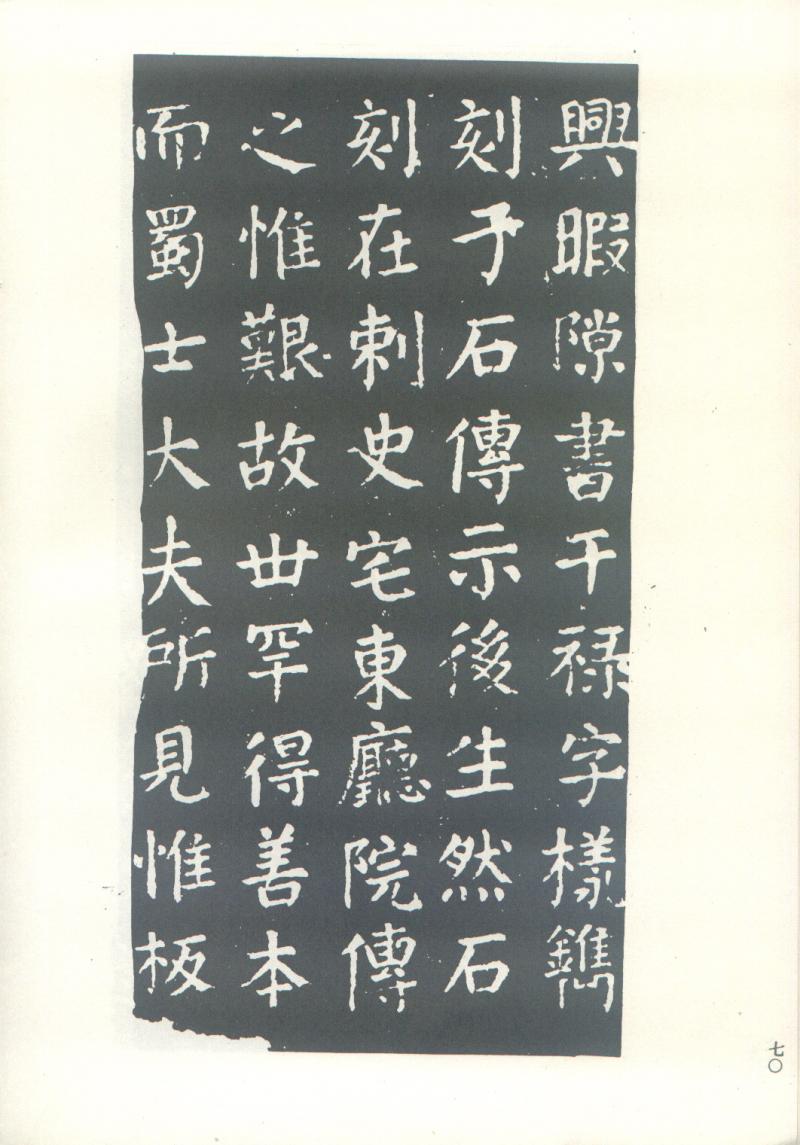 興暇隙書干禄字樣鐫
刻于石傳示後生然石
刻在刺史宅東廳院傳
之惟艱故丗罕得善本
而蜀士大夫所見惟板
七〇